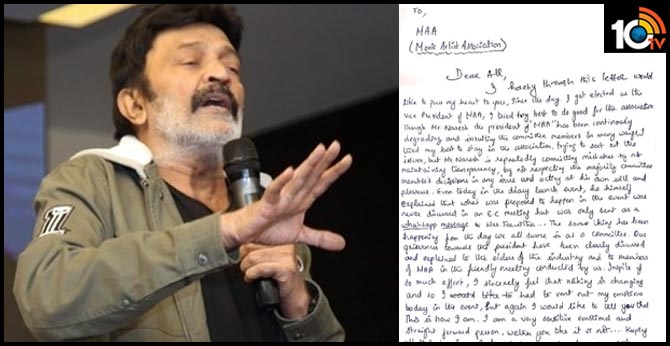 10
TV
To,
MAA
(Movie Artist Association)
Dear All,
I hereby through this letter would
like to pour my heart to you, Since the day I got elected as the
Vice President of MAA, I tried my best to do good for the association
Though Mr Naresh the president of MAA has been continuously
degrading and insulting the committee members in many ways I
tried my best to stay in the association, trying to sort out the
issues, but Mr Naresh is repeatedly committing mistakes by not
maintaining transparency, by not respecting the majority committee
member's decisions in any issue and acting at his own will and
pleasure. Even today in the diary launch event, he himself
explained that what was proposed to happen in the event was
never discussed in an E.C meeting but was only sent as a
whatsapp message to Mrs. The same thing has been
happening from the day we all swore in as a committee. Our
grievances towards the president have been clearly discussed
and explained to the elders of the industry and to members
of MAA in the friendly meeting conducted by us. Inspite of
so much effort, I sincerely feel that nothing is changing
and so I had to vent out my emotions
today in the event, but again I would like to tell you that
This is how I am. I am a very sensitive emotional and
straight forward person, wether you like it or not....